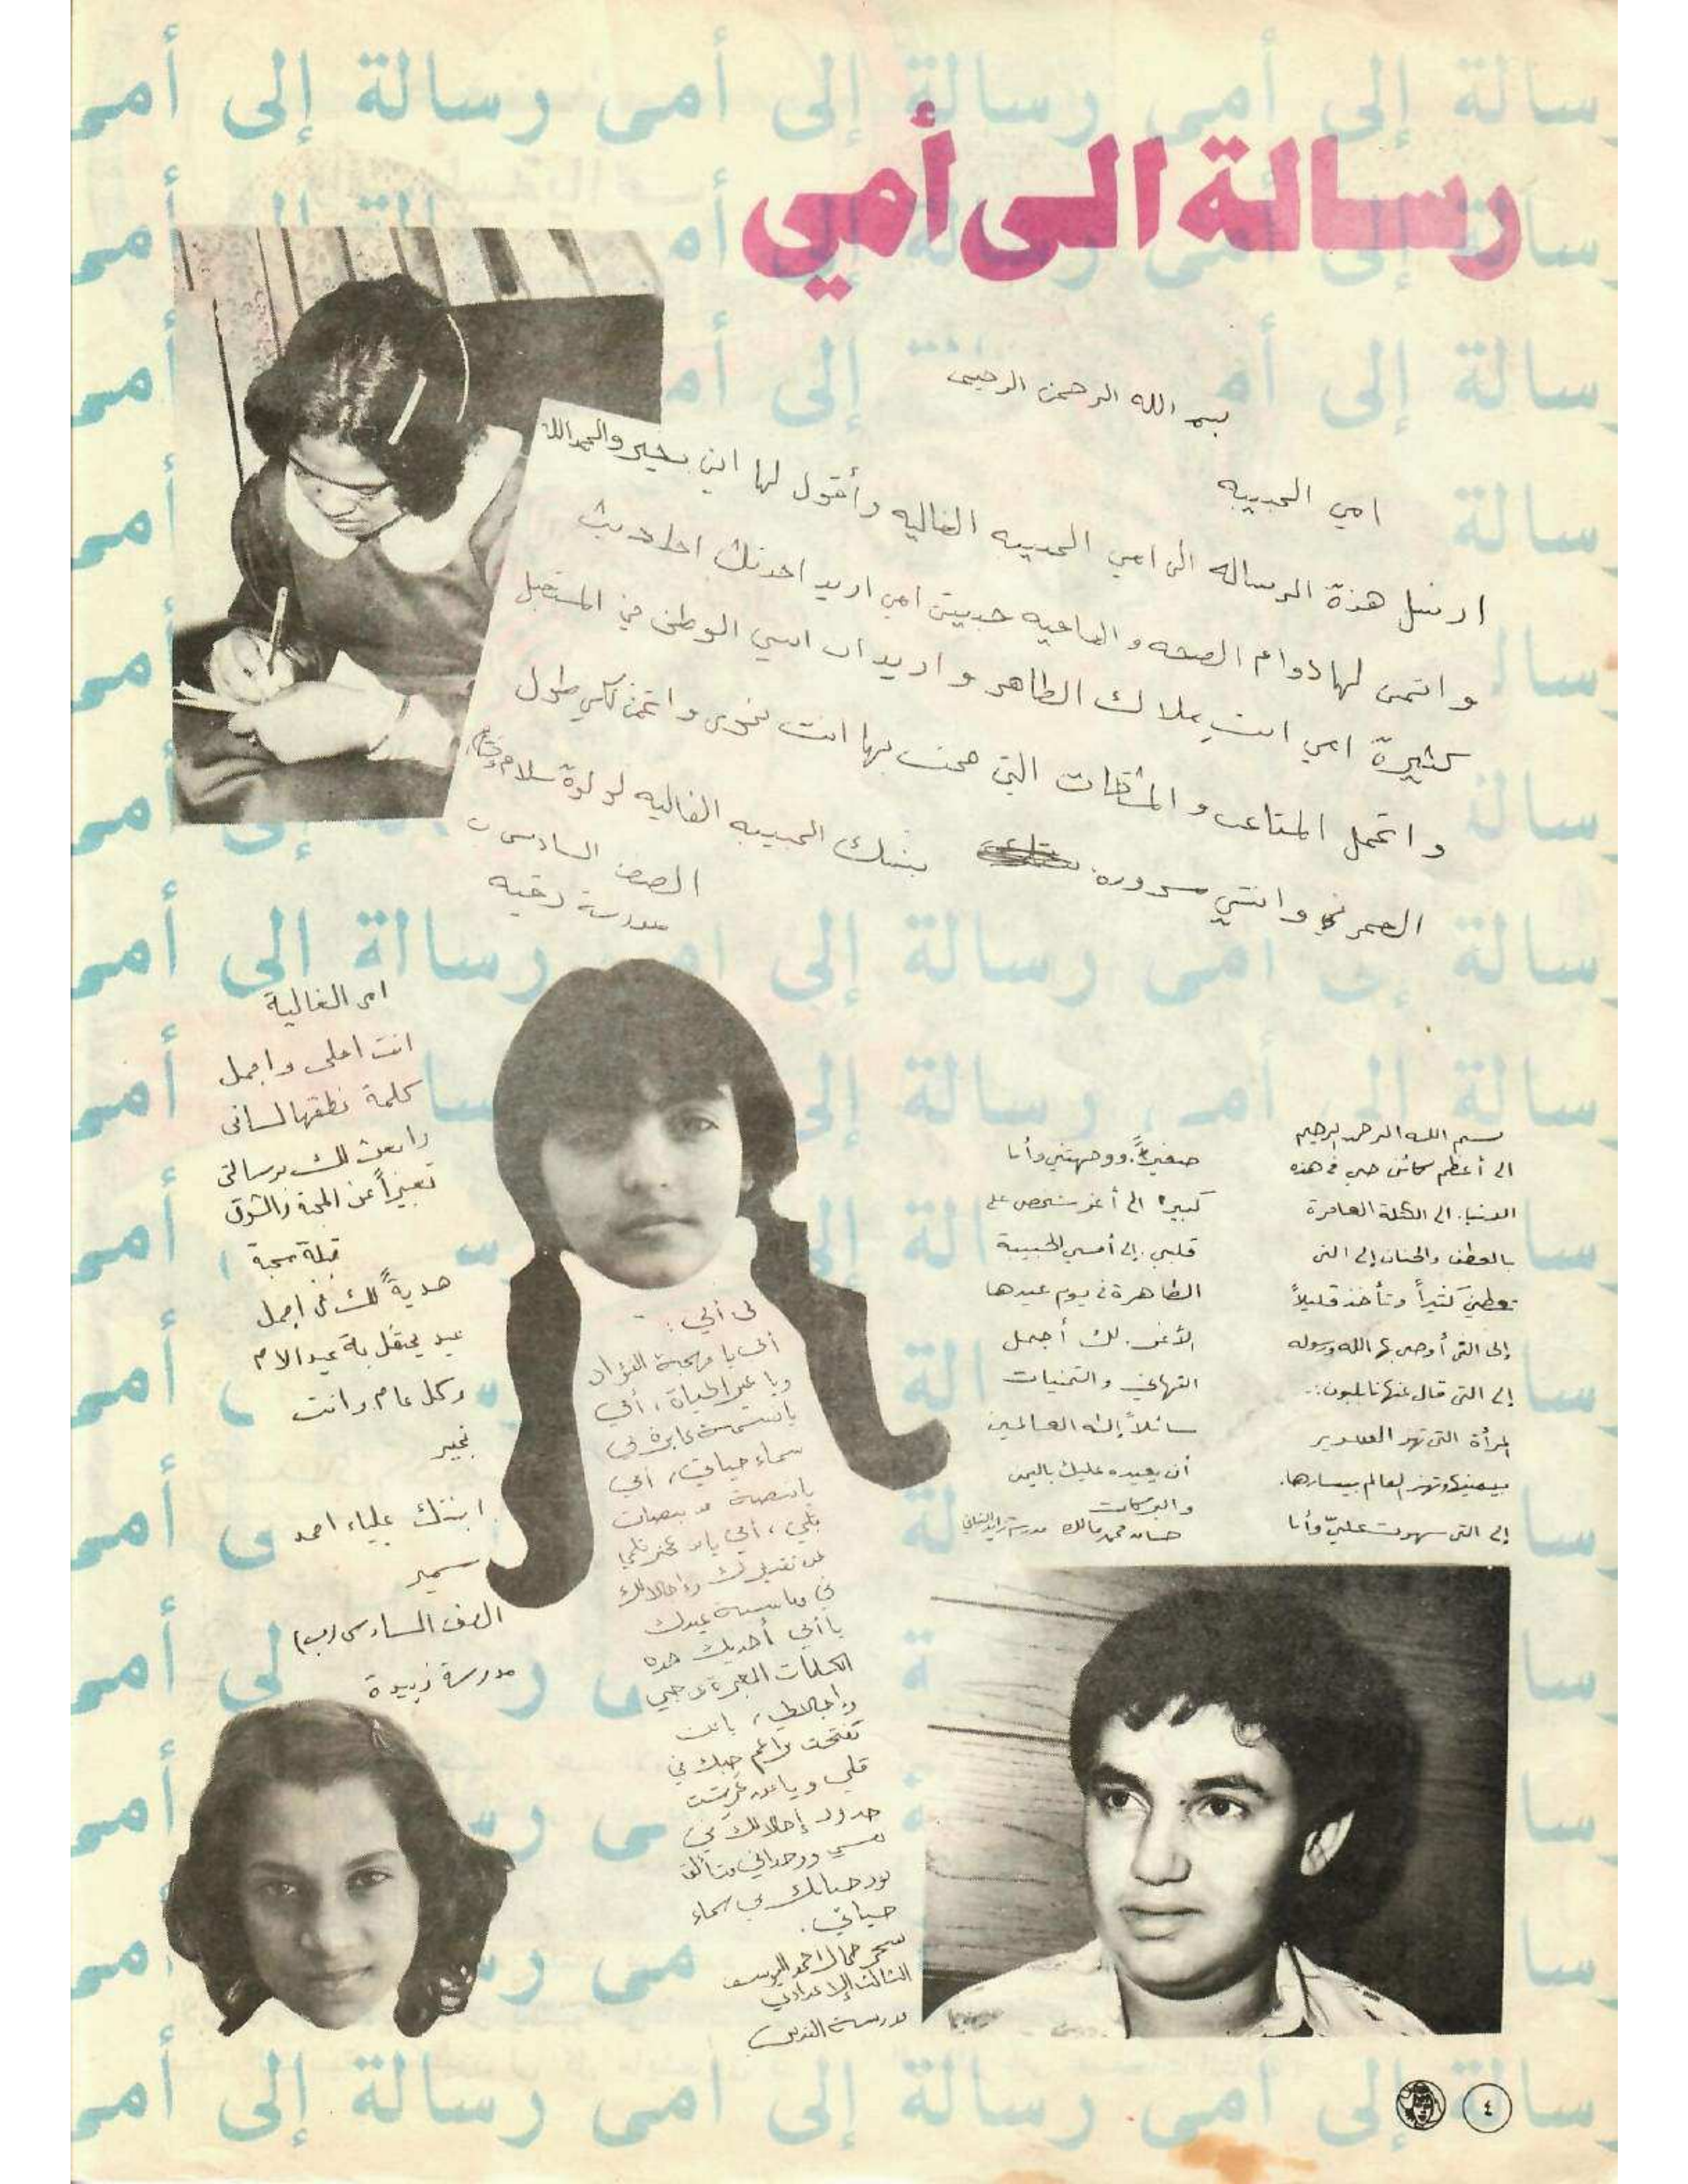 رسالة الى أمي
بسم الله الرحمن الرحيم
امي الحبيبه
ارسل هذة الرساله الى امي الحبيبه الغاليه وأقول لها اني بخير والحمدالله
و اتمنى لها دوام الصحه و العافيه حبيبتي امي اريد احدثك احاديث
كثيرة امي انت ملاك الطاهر و اريد ان ابني الوطن في المستقبل
و اتحمل المتاعب و المشقات التي مع بها انت نحوي و اتمنى لكي طول
العمر و انتي مسروره بنتك الحبيبه الغاليه لولوة سلام
الصف السادس ب
مدرسة رقيه
امى الغالية
انت احلى واجمل
كلمة نطقها لسانى
وابعث لك برسالتى
تعبيراً عن المحبة والشوق
قبلة محبة
هديةً لك فى اجمل
عيد يحتفل بة عيد الام
وكل عام وانت
بخير
ابنتك علياء احمد
سمير
الصف السادس (ب)
مدرسة زبيدة
أمي يا مهجة الفؤاد
ويا عبير الحياة، أمي
سماء حياتي، أمي
يا نبضة من نبضات
قلبي، أمي يا من عجز قلمي
عن تقديرك وإجلالك
في مناسبة عيدك
يا أمي أهديك هذه
الكلمات المعبرة عن حبي
وإجلالي، يا من
تفتحت براعم حبك في
قلبي ويا من
حدود إجلالك في
نفسي ووجداني
نور حنانك في سماء
حياتي.
سحر جمال احمد اليوسف
الثالث الإعدادي
مدرسة القدس
بسم الله الرحمن الرحيم
الى أعظم كائن حي في هذه
الدنيا. الى الكتلة العامرة
بالعطف والحنان إلى التى
تعطينى كثيراً وتأخذ قليلاً
إلى التى أوصى بها الله ورسوله
إلى التى قال عنها نابليون:
المرأة التى تهز السرير
بيمينها وتهز العالم بيسارها.
إلى التى سهرت عليّ وأنا
صغيراً. ووجهتني وأنا
كبيراً الى أعز شخص على
قلبي. إلى أمي الحبيبة
الطاهرة في يوم عيدها
الأغر. لك أجمل
التهاني والتمنيات
سائلاً إله العالمين
أن يعيده عليك باليمن
والبركات
حسان محمد مالك مدرسة زايد الثانى
٤